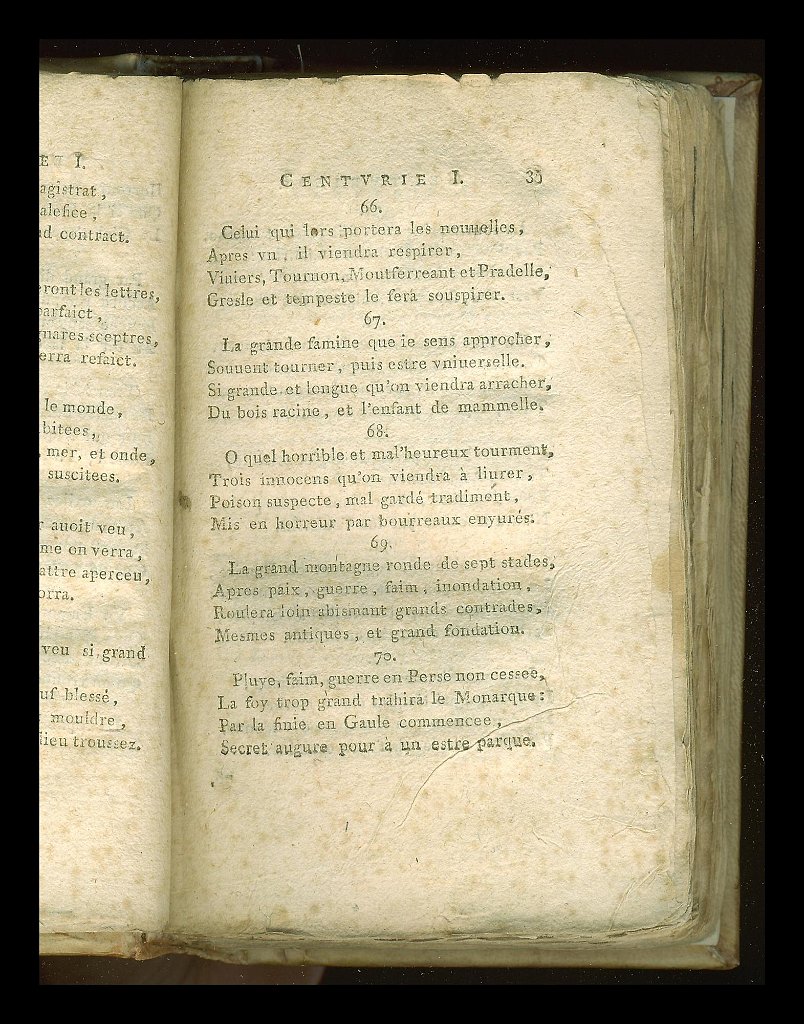 E I.
agistrat,
alefice,
d contract.
ront les lettres,
parfaict,
gnares sceptres,
erra refaict.
le monde,
bitees,
mer, et onde,
suscitees.
r auoit veu,
me on verra,
attre aperceu,
orra.
veu si grand
uf blessé,
mouldre,
lieu troussez.
CENTVRIE I. 35
66.
Celui qui lors portera les nouuelles,
Apres vn, il viendra respirer,
Viuiers, Tournon, Moutferreant et Pradelle,
Gresle et tempeste le fera souspirer.
67.
La grande famine que ie sens approcher,
Souuent tourner, puis estre vniuerselle.
Si grande et longue qu'on viendra arracher,
Du bois racine, et l'enfant de mammelle.
68.
O quel horrible et mal'heureux tourment,
Trois innocens qu'on viendra à liurer,
Poison suspecte, mal gardé tradiment,
Mis en horreur par bourreaux enyurés.
69.
La grand montagne ronde de sept stades,
Apres paix, guerre, faim, inondation,
Roulera loin abismant grands contrades,
Mesmes antiques, et grand fondation.
70.
Pluye, faim, guerre en Perse non cessee,
La foy trop grand trahira le Monarque:
Par la finie en Gaule commencee,
Secret augure pour à un estre parque.